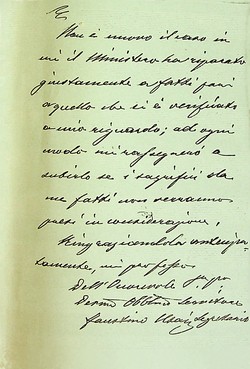 Non è nuovo il caso in
cui il Ministero ha riparato
giustamente a fatti pari
a quello che si è verificato
a mio riguardo; ad ogni
modo mi rassegnerò a
subirlo se i sacrifici da
me fatti non verranno
presi in considerazione.
Ringraziandola anticipa-
tamente, mi professo
Dell'Onorevole
Devmo Obblmo Servitore
Faustino Segretario